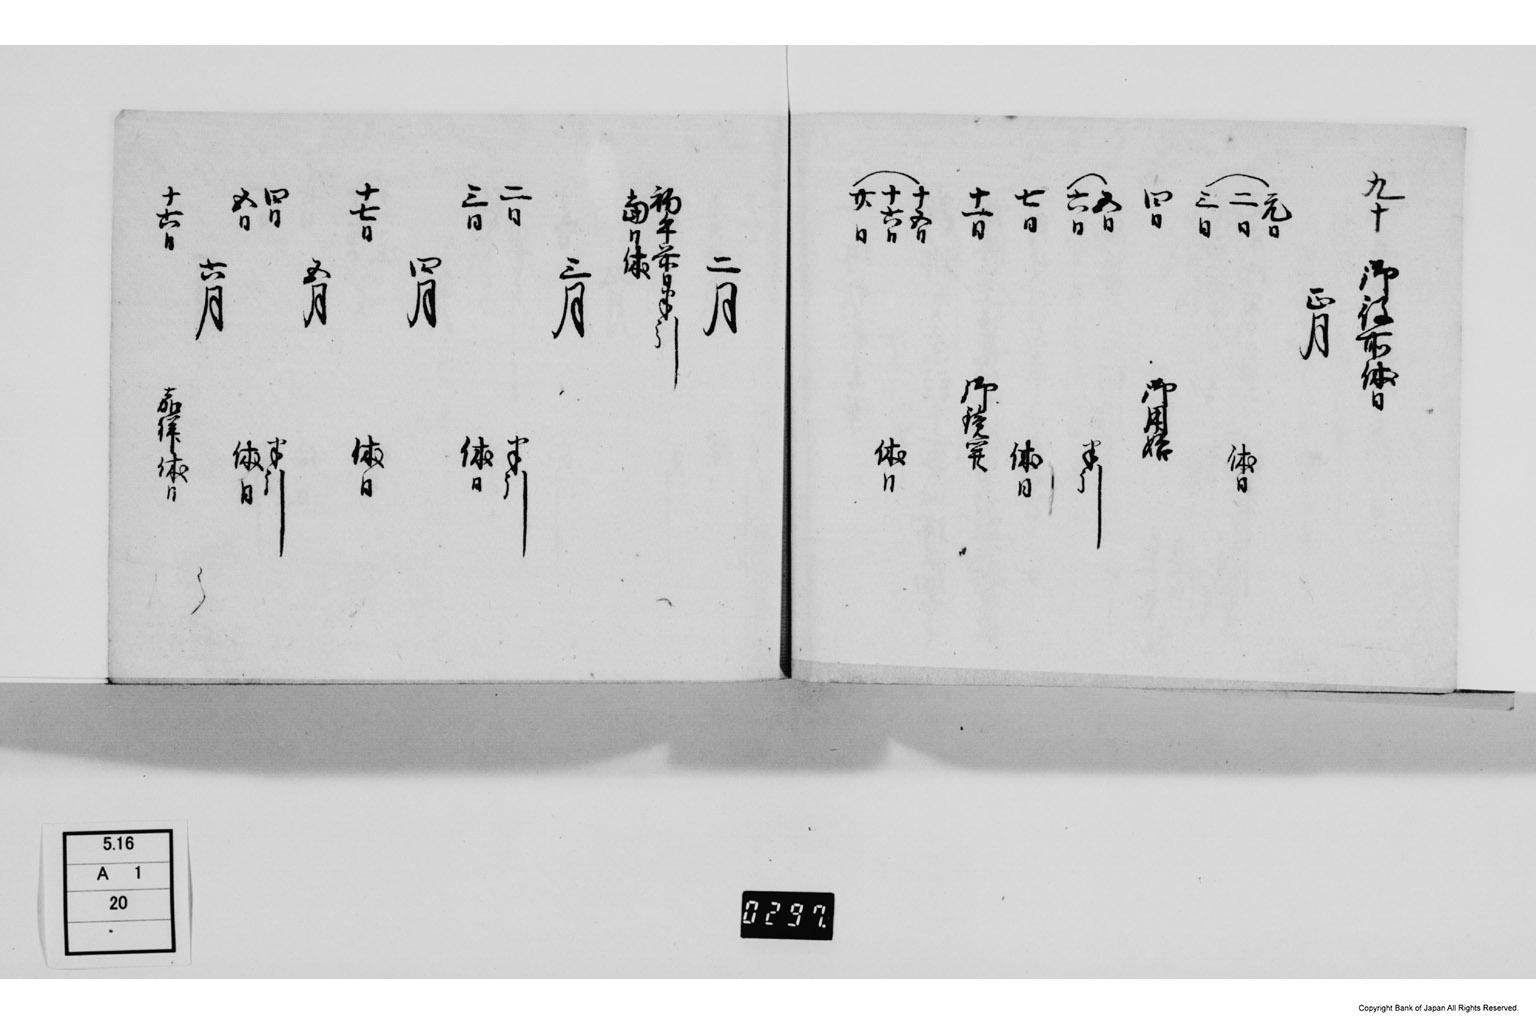 九十 御役所休日
正月
元日
二日
三日 休日
四日 御用始
五日
六日 半引
七日 休日
十一日 御鏡開
十五日
十六日
廿日 休日
二月
初午前日半引
当日休
三月
二日 半引
三日 休日
四月
十七日 休日
五月
四日 半引
五日 休日
六月
十六日 嘉祥休日
5.16
A 1
20
0297
Copyright Bank of Japan All Rights Reserved.